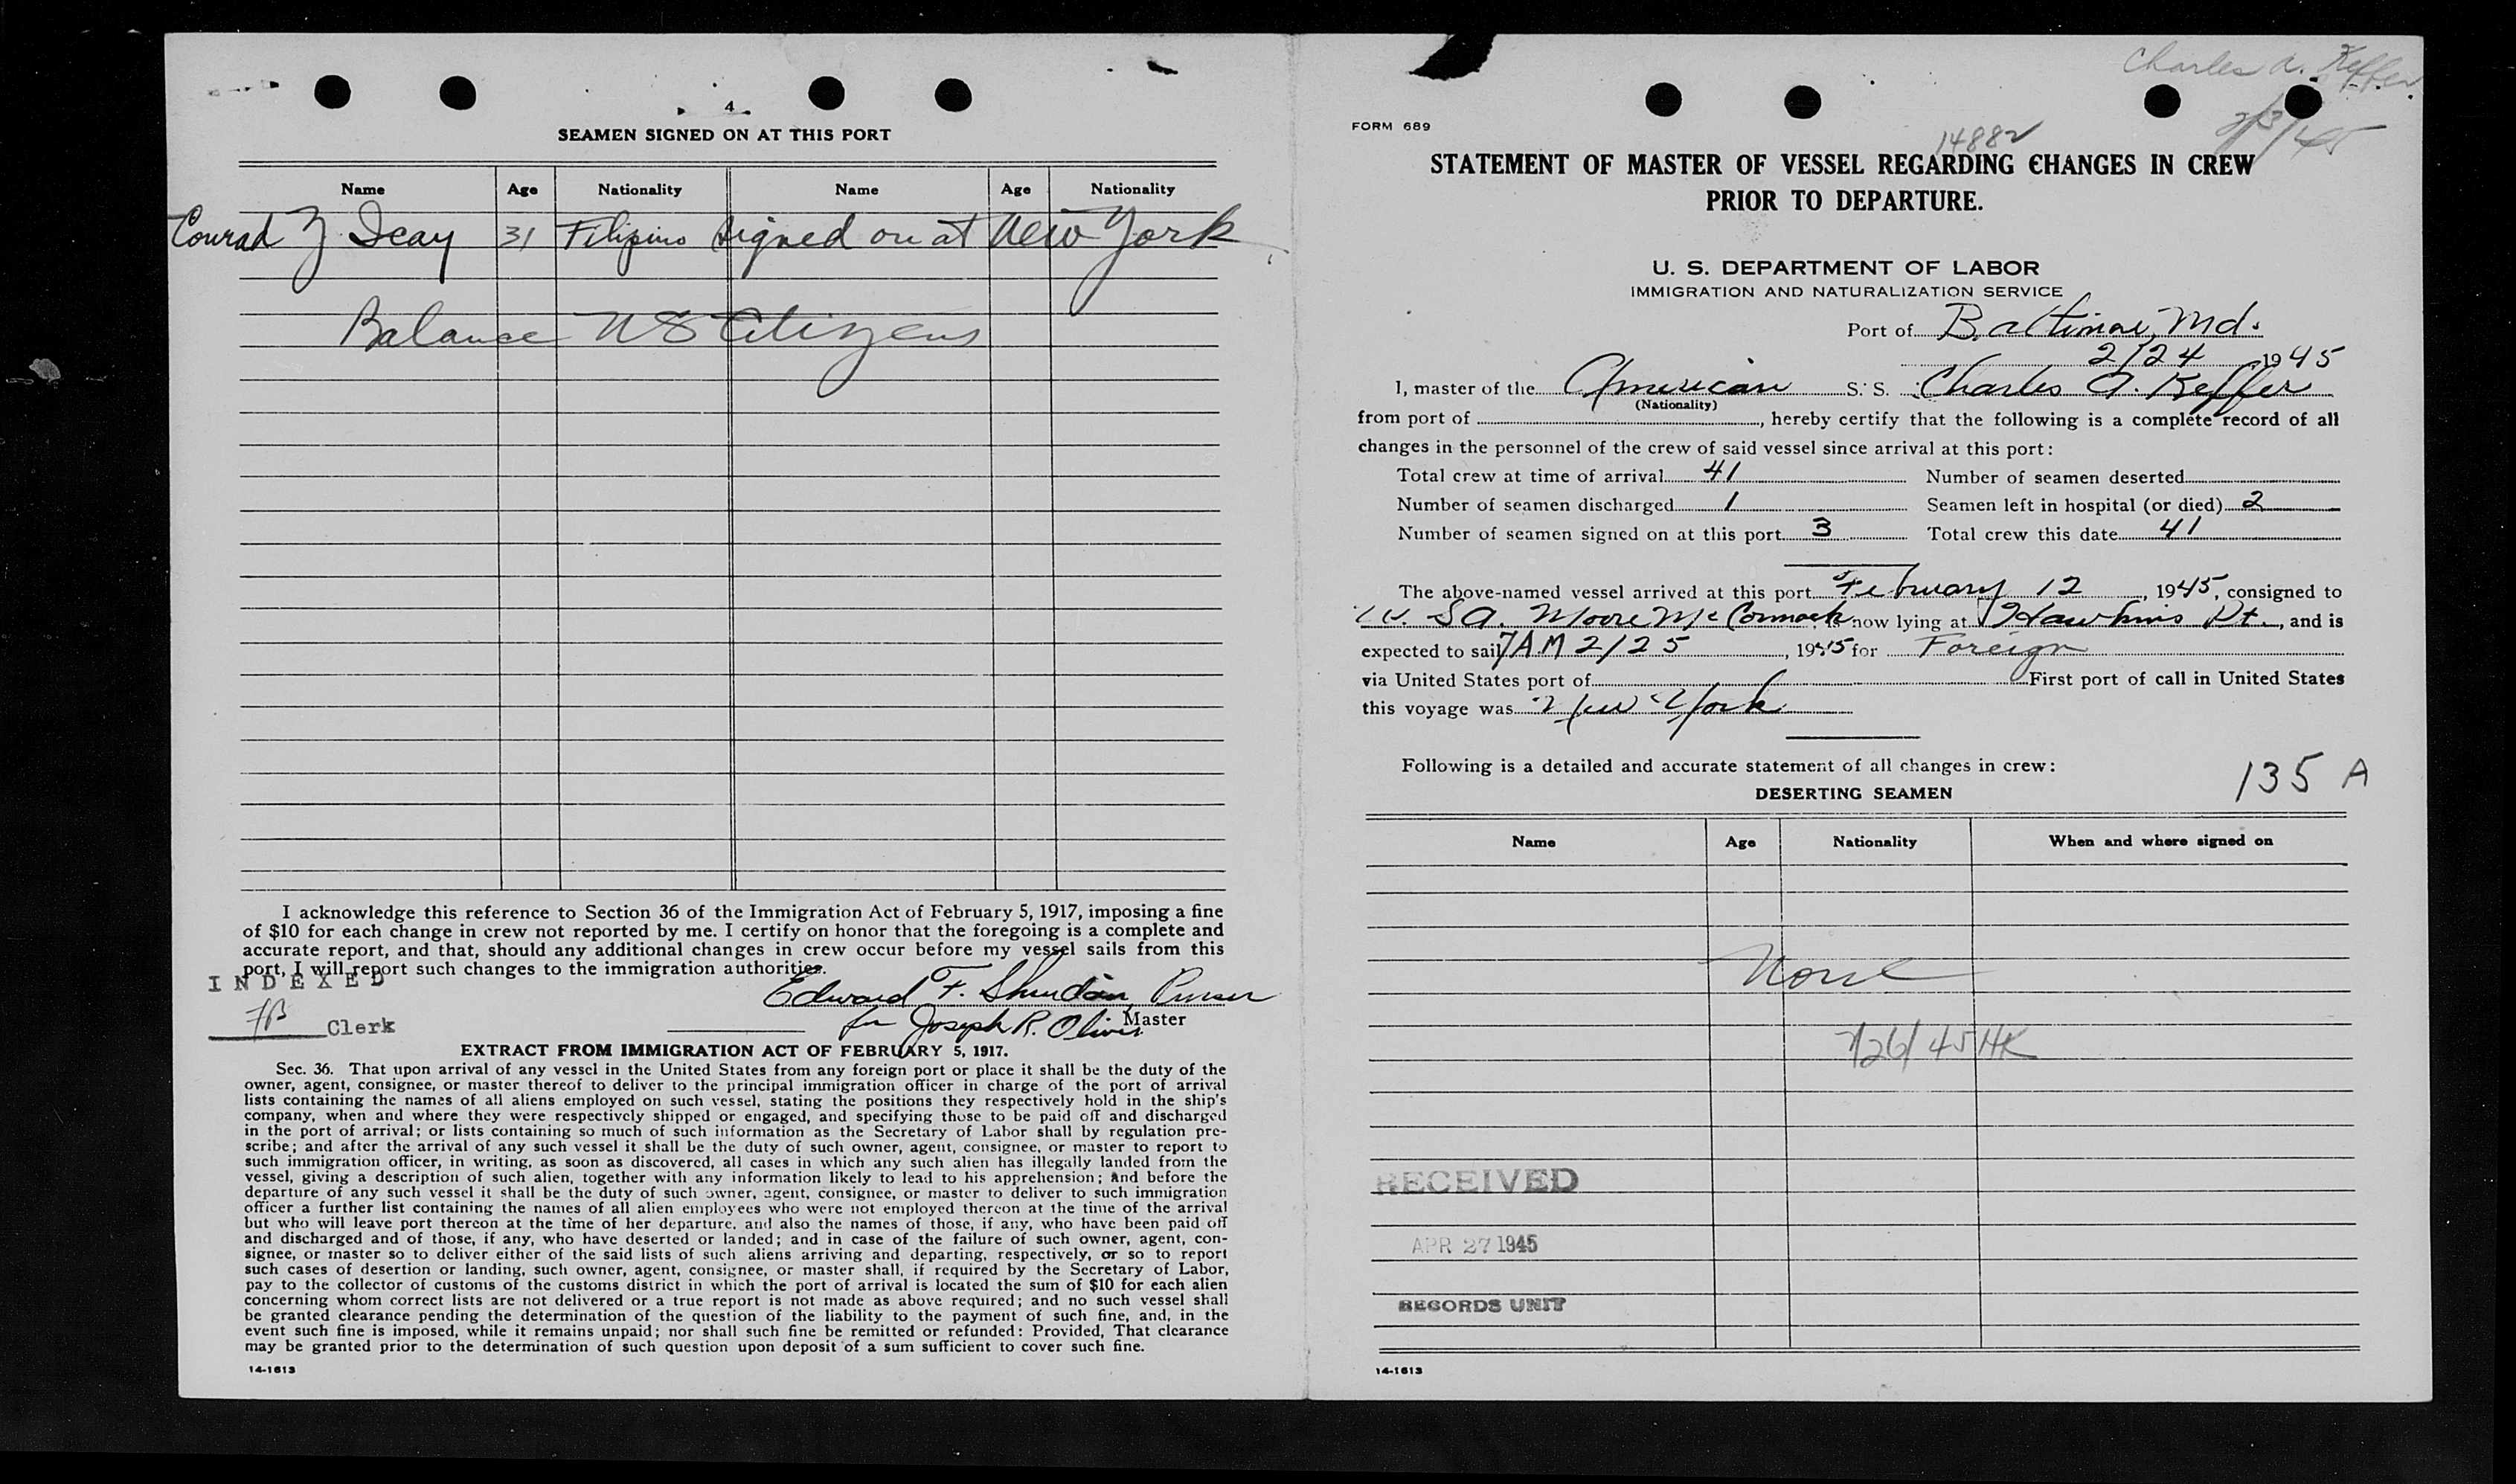 4
SEAMEN SIGNED ON AT THIS PORT
Name Age Nationality Name Age Nationality
Conrad Z Icay 31 Filipino signed on at New York
Balance US Citizens
I acknowledge this reference to Section 36 of the Immigration Act of February 5, 1917, imposing a fine
of $10 for each change in crew not reported by me. I certify on honor that the foregoing is a complete and
accurate report, and that, should any additional changes in crew occur before my vessel sails from this
port, I will report such changes to the immigration authorities.
INDEXED
Edward F. Sheridan, Purser
Clerk
for Joseph R. Oliver Master
EXTRACT FROM IMMIGRATION ACT OF FEBRUARY 5, 1917.
Sec. 36. That upon arrival of any vessel in the United States from any foreign port or place it shall be the duty of the
owner, agent, consignee, or master thereof to deliver to the principal immigration officer in charge of the port of arrival
lists containing the names of all aliens employed on such vessel, stating the positions they respectively hold in the ship's
company, when and where they were respectively shipped or engaged, and specifying those to be paid off and discharged
in the port of arrival; or lists containing so much of such information as the Secretary of Labor shall by regulation pre-
scribe; and after the arrival of any such vessel it shall be the duty of such owner, agent, consignee, or master to report to
such immigration officer, in writing, as soon as discovered, all cases in which any such alien has illegally landed from the
vessel, giving a description of such alien, together with any information likely to lead to his apprehension; and before the
departure of any such vessel it shall be the duty of such owner, agent, consignee, or master to deliver to such immigration
officer a further list containing the names of all alien employees who were not employed thereon at the time of the arrival
but who will leave port thereon at the time of her departure, and also the names of those, if any, who have been paid off
and discharged and of those, if any, who have deserted or landed; and in case of the failure of such owner, agent, con-
signee, or master so to deliver either of the said lists of such aliens arriving and departing, respectively, or so to report
such cases of desertion or landing, such owner, agent, consignee, or master shall, if required by the Secretary of Labor,
pay to the collector of customs of the customs district in which the port of arrival is located the sum of $10 for each alien
concerning whom correct lists are not delivered or a true report is not made as above required; and no such vessel shall
be granted clearance pending the determination of the question of the liability to the payment of such fine, and, in the
event such fine is imposed, while it remains unpaid; nor shall such fine be remitted or refunded: Provided, That clearance
may be granted prior to the determination of such question upon deposit of a sum sufficient to cover such fine.
14-1613
Charles A. Keffer
FORM 689
14882
STATEMENT OF MASTER OF VESSEL REGARDING CHANGES IN CREW
PRIOR TO DEPARTURE.
U. S. DEPARTMENT OF LABOR
IMMIGRATION AND NATURALIZATION SERVICE
Port of Baltimore, Md.
2/24 1945
I, master of the American S. S. Charles A. Keffer
(Nationality)
from port of , hereby certify that the following is a complete record of all
changes in the personnel of the crew of said vessel since arrival at this port:
Total crew at time of arrival 41 Number of seamen deserted
Number of seamen discharged 1 Seamen left in hospital (or died) 2
Number of seamen signed on at this port 3 Total crew this date 41
The above-named vessel arrived at this port February 12, 1945, consigned to
W. S. A. Moore McCormack, is now lying at Hawkins Pt., and is
expected to sail 7 AM 2/25, 1945 for Foreign
via United States port of First port of call in United States
this voyage was New York
Following is a detailed and accurate statement of all changes in crew:
135 A
DESERTING SEAMEN
Name Age Nationality When and where signed on
None
7/26/45 HK
RECEIVED
APR 27 1945
RECORDS UNIT
14-1613